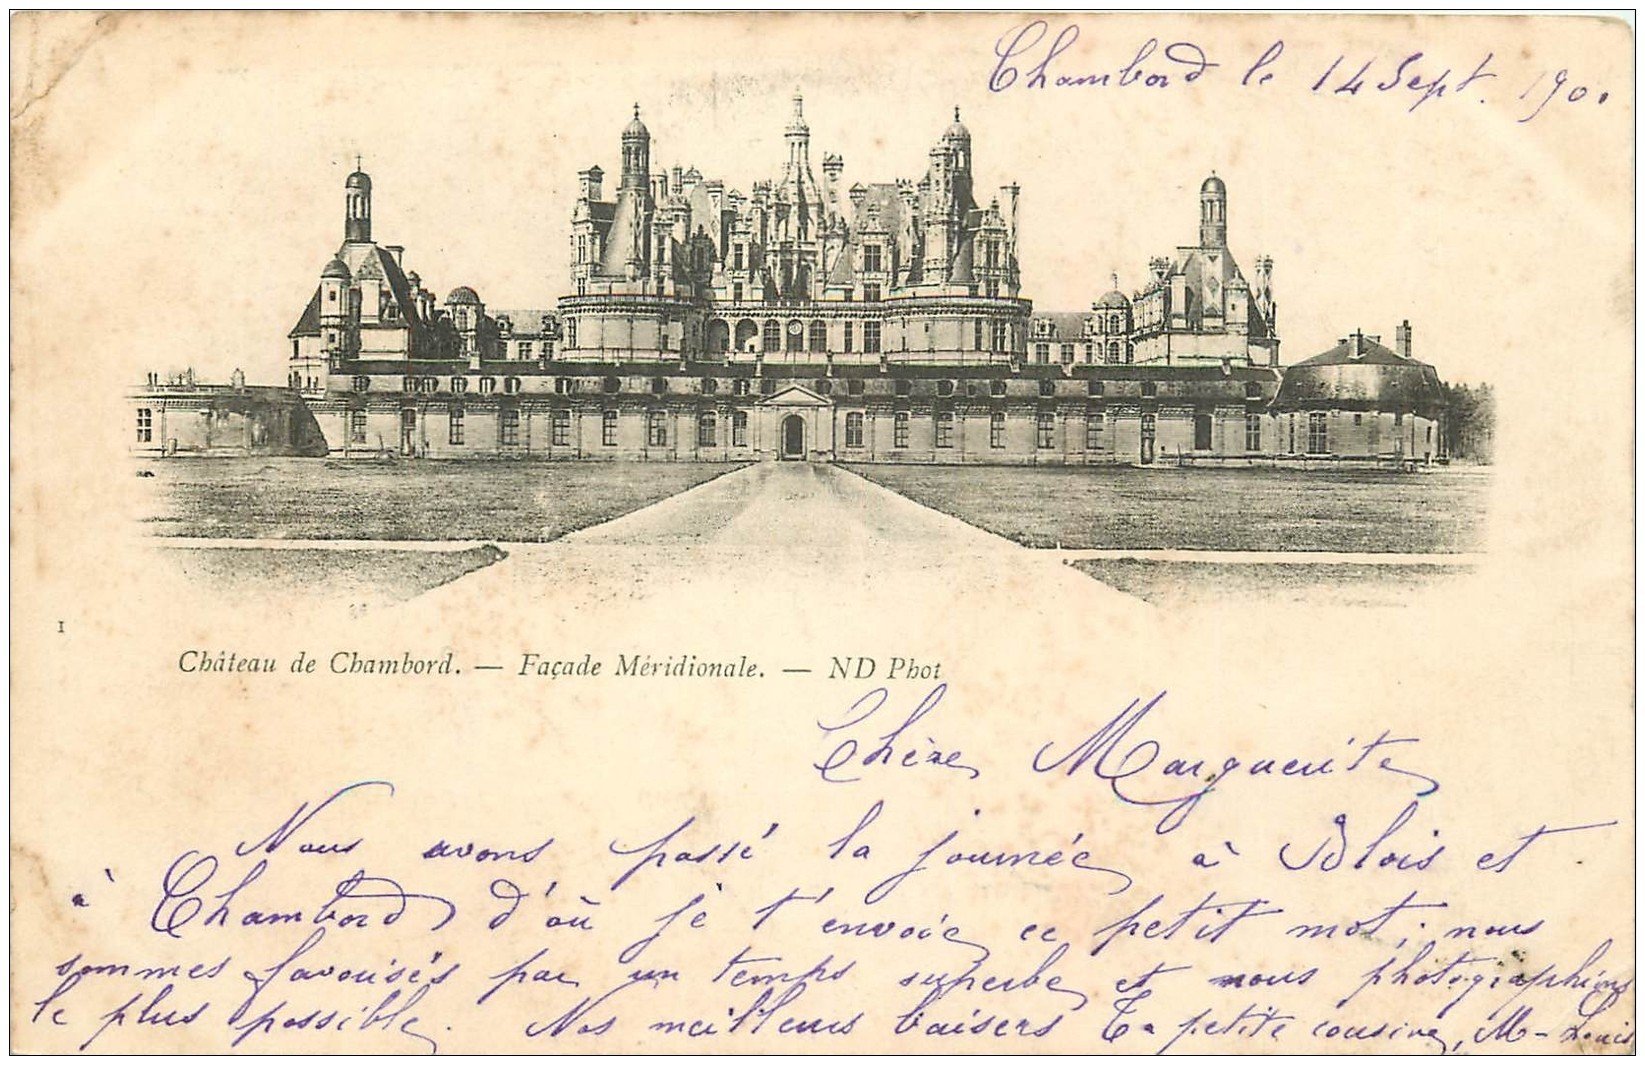 Chambord le 14 Sept. 190.
1
Château de Chambord. — Façade Méridionale. — ND Phot
Chère Marguerite
Nous avons passé la journée à Blois et
à Chambord d'où je t'envoie ce petit mot; nous
sommes favorisés par un temps superbe et nous photographions
le plus possible. Nos meilleurs baisers Ta petite cousine, M-Louis